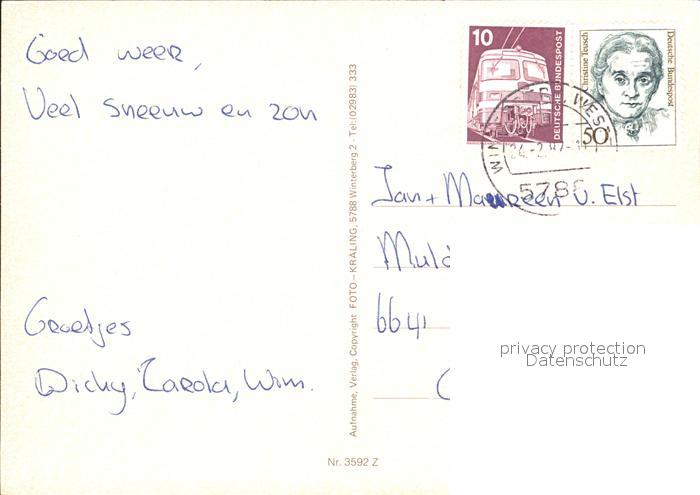 Goed weer,
Veel sneeuw en zon
Groetjes
Dicky, Carola, Wim.
Aufnahme, Verlag, Copyright FOTO-KRALING, 5788 Winterberg 2 - Tel: (02983) 333
Nr. 3592 Z
10
DEUTSCHE BUNDESPOST
Christine Teusch
Deutsche Bundespost
50
24.-2.87-1
5788
Jan + Maureen v. Elst
6641
privacy protection
Datenschutz